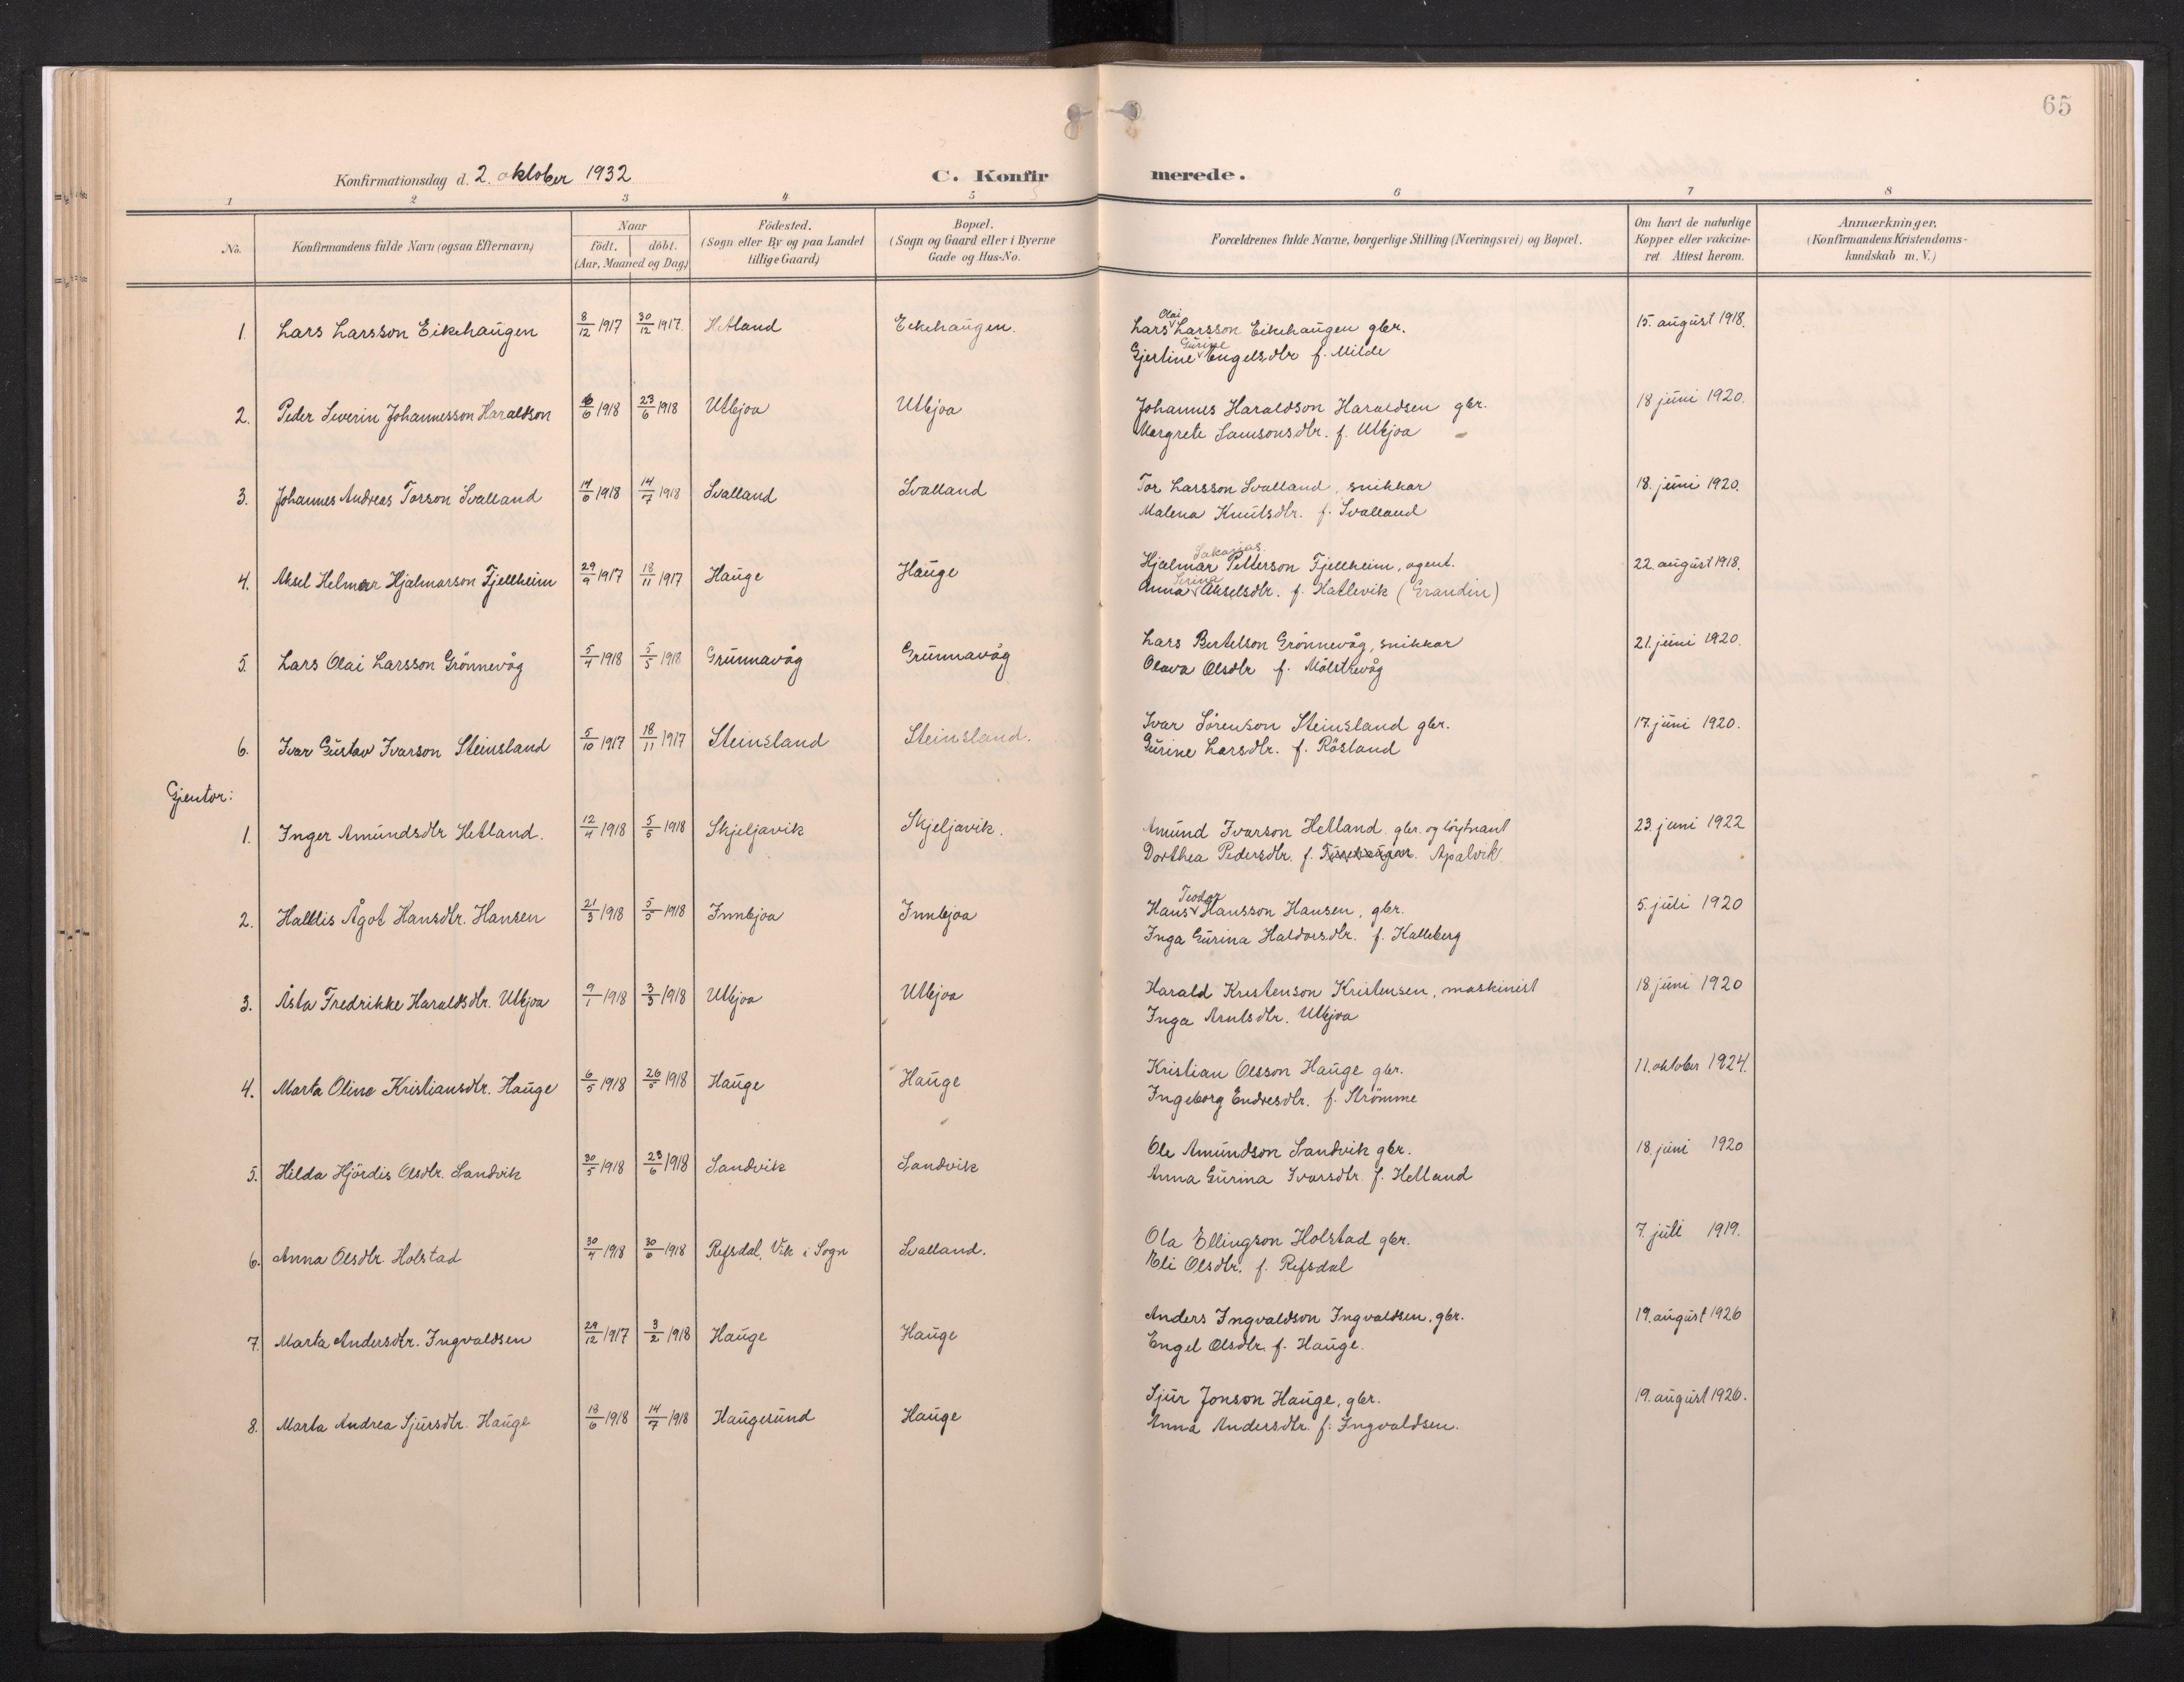 65
Konfirmationsdag d. 2. oktober 1932
C. Konfirmerede.
1 2 3 4 5 6 7 8
No. | Konfirmandens fulde Navn (ogsaa Efternavn) | Naar födt. döbt. (Aar, Maaned og Dag.) | Födested. (Sogn eller By og paa Landet tillige Gaard) | Bopæl. (Sogn og Gaard eller i Byerne Gade og Hus-No. | Forældrenes fulde Navne, borgerlige Stilling (Næringsvei) og Bopæl. | Om havt de naturlige Kopper eller vakcineret. Attest herom. | Anmærkninger. (Konfirmandens Kristendomskundskab m. V.)
1. Lars Larsson Eikehaugen 8/12 1917 30/12 1917. Hetland Eikehaugen. Lars Olai Larsson Eikehaugen gbr. 15. august 1918.
Gjertine Gurine Engelsdtr f. Milde
2. Peder Severin Johannesson Haraldson 6/6 1918 23/6 1918 Utbjoa Utbjoa Johannes Haraldson Haraldsen gbr. 18 juni 1920.
Margrete Samsonsdtr. f. Utbjoa
3. Johannes Andreas Torson Svalland 14/6 1918 14/7 1918 Svalland Svalland Tor Larsson Svalland, snikkar 18. juni 1920.
Malena Knutsdtr. f. Svalland
4. Aksel Helmer Hjalmarson Fjellheim 29/9 1917 18/11 1917 Hauge Hauge Hjalmar Sakarias Petterson Fjellheim, agent. 22. august 1918.
Anna Serina Akselsdtr. f. Hatlevik (Grandin)
5. Lars Olai Larsson Grönnevåg 5/4 1918 5/5 1918 Grunnavåg Grunnavåg Lars Bertelson Grönnevåg, snikkar 21. juni 1920.
Olava Olsdtr f. Mölstrevåg
6. Ivar Gustav Ivarson Steinsland 5/10 1917 18/11 1917 Steinsland Steinsland. Ivar Sörenson Steinsland gbr. 17. juni 1920.
Gurine Larsdtr. f. Rösland
Gjentor:
1. Inger Amundsdtr Hetland. 12/4 1918 5/5 1918 Skjeljavik Skjeljavik. Amund Ivarson Hetland, gbr. og löytnant 23. juni 1922
Dorthea Pedersdtr. f. Apalvik
2. Halldis Ågot Hansdtr. Hansen 21/3 1918 5/5 1918 Innbjoa Innbjoa Hans Teodor Hansson Hansen, gbr. 5. juli 1920
Inga Gurina Haldorsdtr. f. Kalleberg
3. Åsta Fredrikke Haraldsdtr. Utbjoa 9/1 1918 3/3 1918 Utbjoa Utbjoa Harald Kristenson Kristensen, maskinist 18 juni 1920
Inga Arntsdtr. Utbjoa
4. Marta Oline Kristiansdtr. Hauge 6/5 1918 26/5 1918 Hauge Hauge Kristian Olsson Hauge gbr. 11. oktober 1924.
Ingeborg Endresdtr. f. Strömme
5. Hilda Hjördis Olsdtr. Sandvik 30/5 1918 23/6 1918 Sandvik Sandvik Ole Amundson Sandvik gbr. 18. juni 1920
Anna Gurina Ivarsdtr. f. Hetland
6. Anna Olsdtr. Holstad 30/4 1918 30/6 1918 Refsdal, Vik i Sogn Svalland. Ola Ellingson Holstad gbr. 7. juli 1919.
Eli Olsdtr. f. Refsdal
7. Marta Andersdtr. Ingvaldsen 29/12 1917 3/2 1918 Hauge Hauge Anders Ingvaldson Ingvaldsen, gbr. 19. august 1926
Engel Olsdtr. f. Hauge.
8. Marta Andrea Sjursdtr. Hauge 13/6 1918 14/7 1918 Haugesund Hauge Sjur Jonson Hauge, gbr. 19. august 1926.
Anna Andersdtr. f. Ingvaldsen.